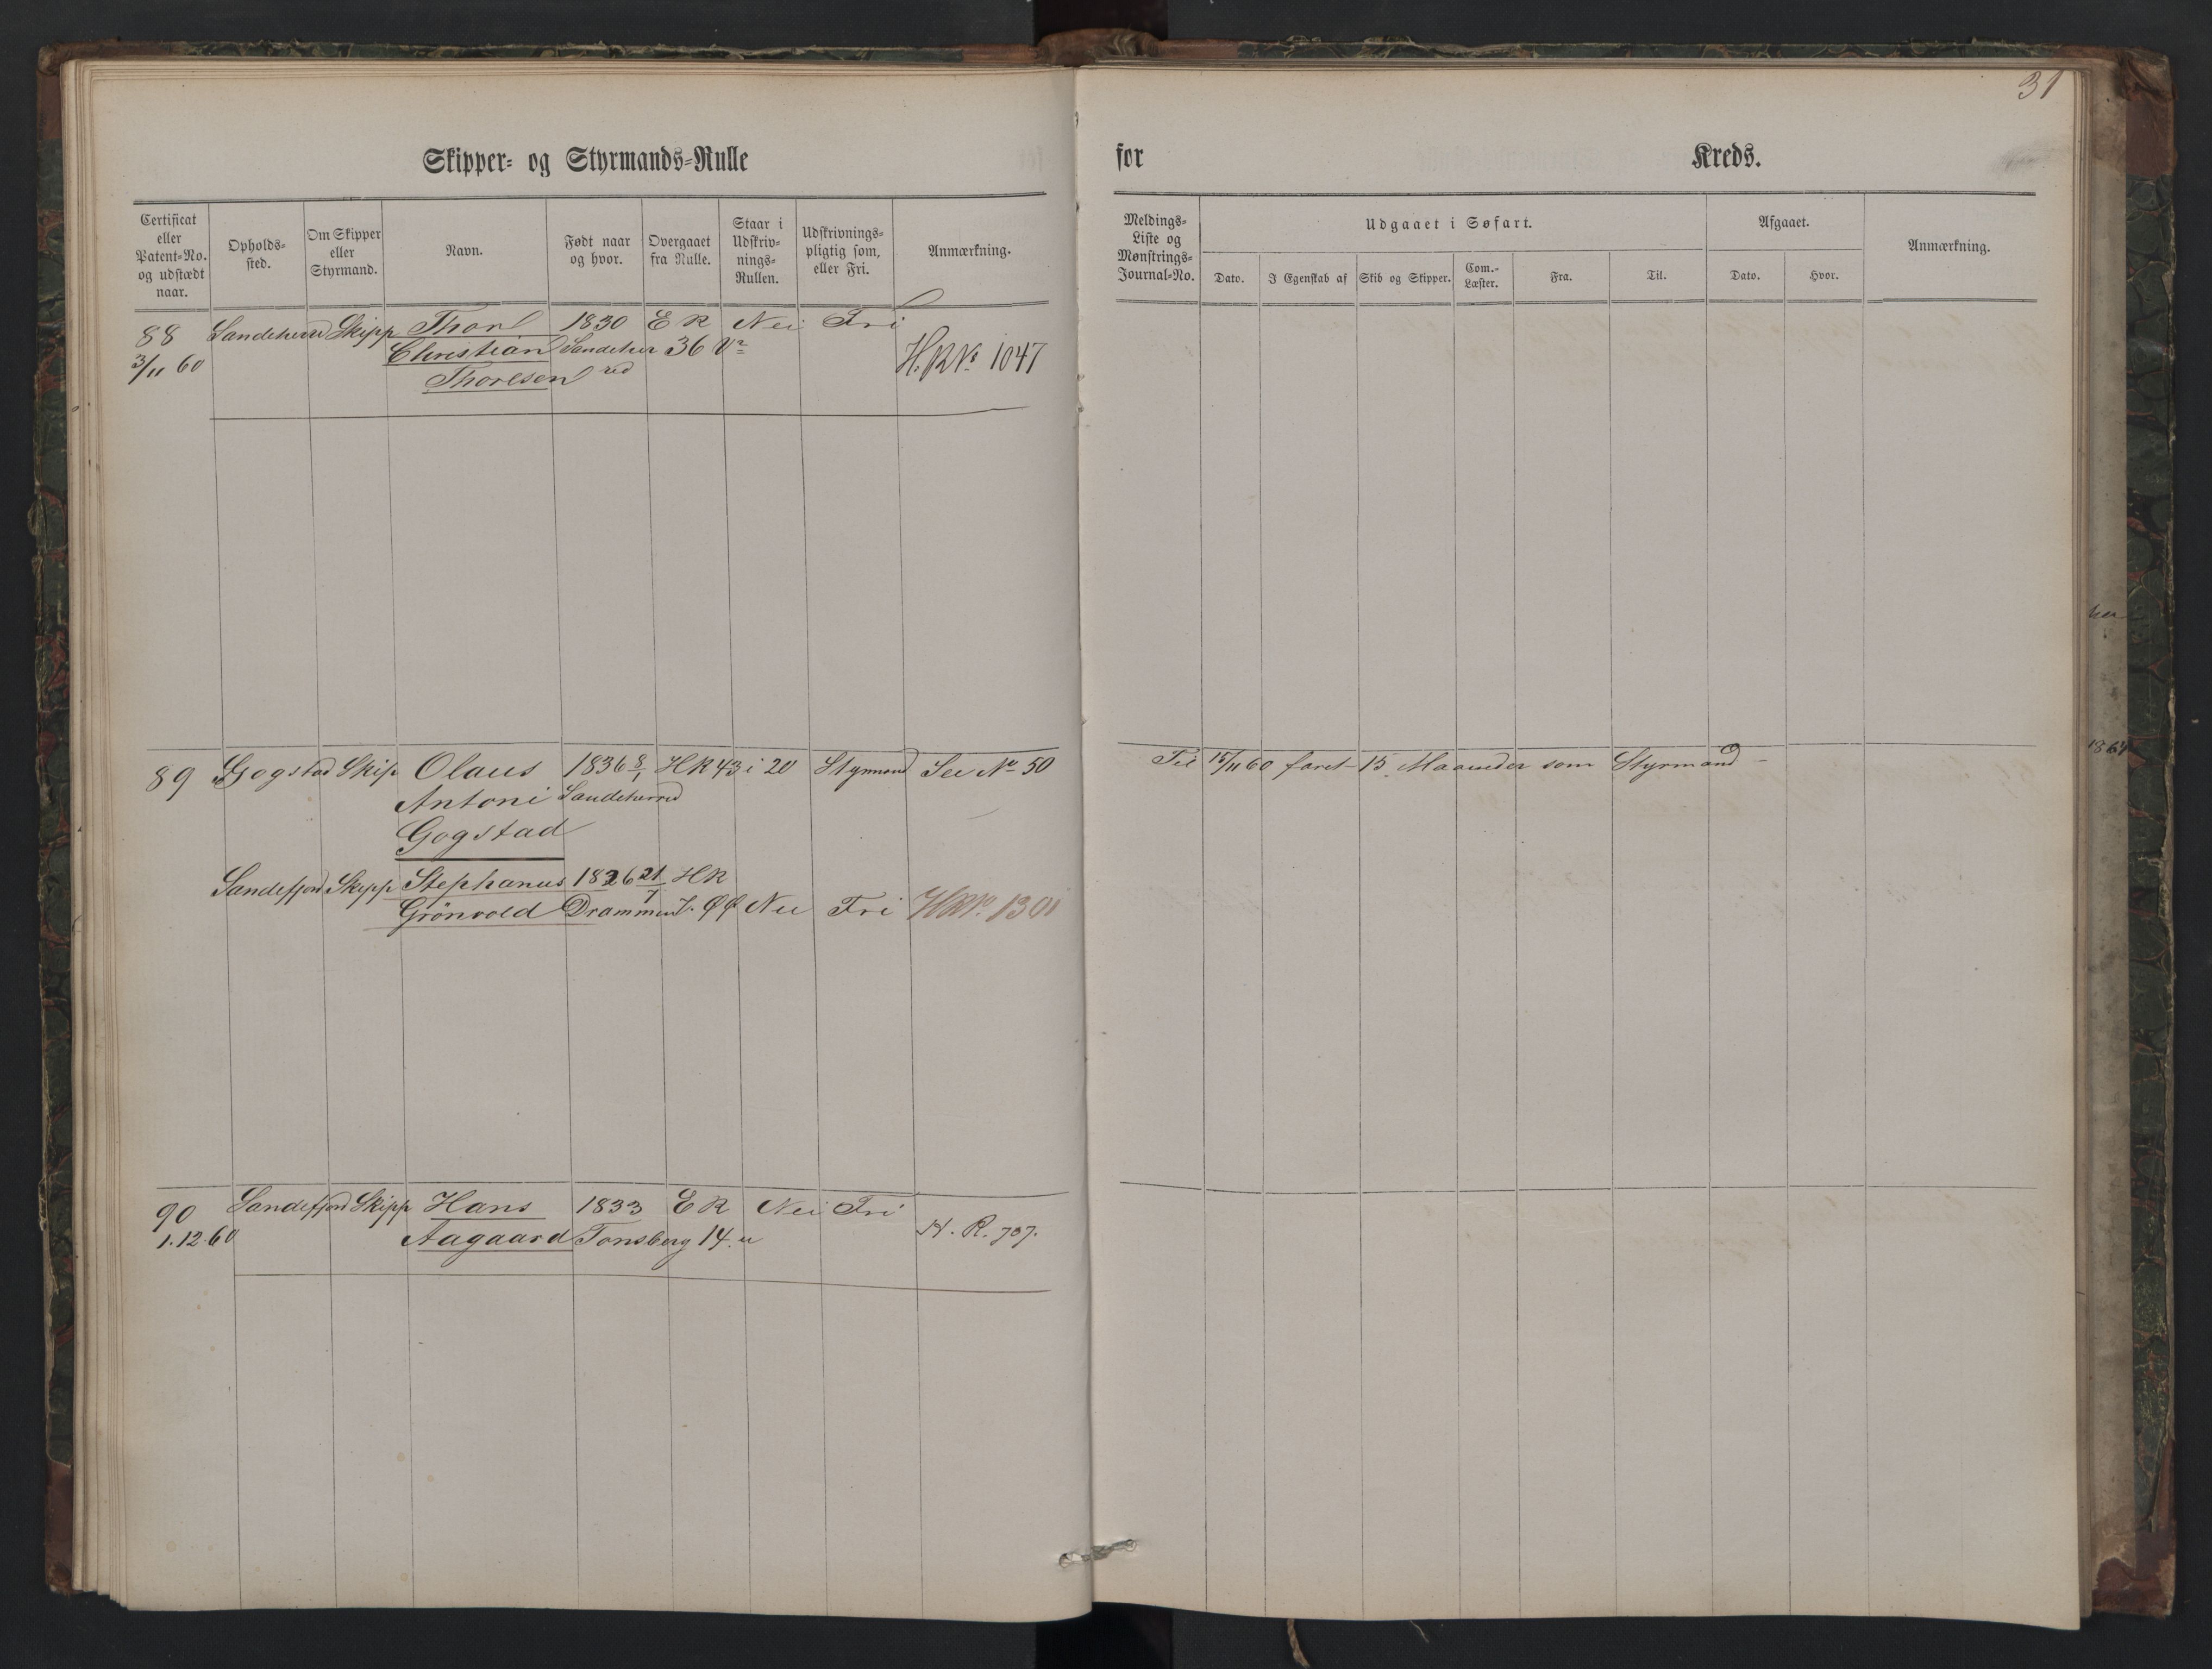 31
Skipper- og Styrmands-Rulle
for Kreds.
Certificat eller Patent-No. og udstædt naar.
Opholds-sted.
Om Skipper eller Styrmand.
Navn.
Født naar og hvor.
Overgaaet fra Rulle.
Staar i Udskriv-nings-Rullen.
Udskrivnings-pligtig som, eller Fri.
Anmærkning.
Meldings-Liste og Mønstrings-Journal-No.
Udgaaet i Søfart.
Dato.
I Egenskab af
Skib og Skipper.
Com.-Læster.
Fra.
Til.
Afgaaet.
Dato.
Hvor.
Anmærkning.
88 Sandeherred Skipp Thorl 1830 E R Nei Fri
3/11 60 Christian Sandeher 36 H.R No 1047
Thorlsen red
89 Gogstad Skip Olaus 1836 8/1 HR 43 i 20 Styrmand See No 50
Antoni Sandeherred
Gogstad
Til 15/11 60 faret 15 Maaneder som Styrmand -
Sandefjord Skipp Stephanus 1826 21/7 HR
Grönvold Drammen Nei Fri HR No. 1301
90 Sandefjord Skipp Hans 1833 E R Nei Fri
1.12.60 Aagaard Tonsberg 14. H. R. 707.
1864